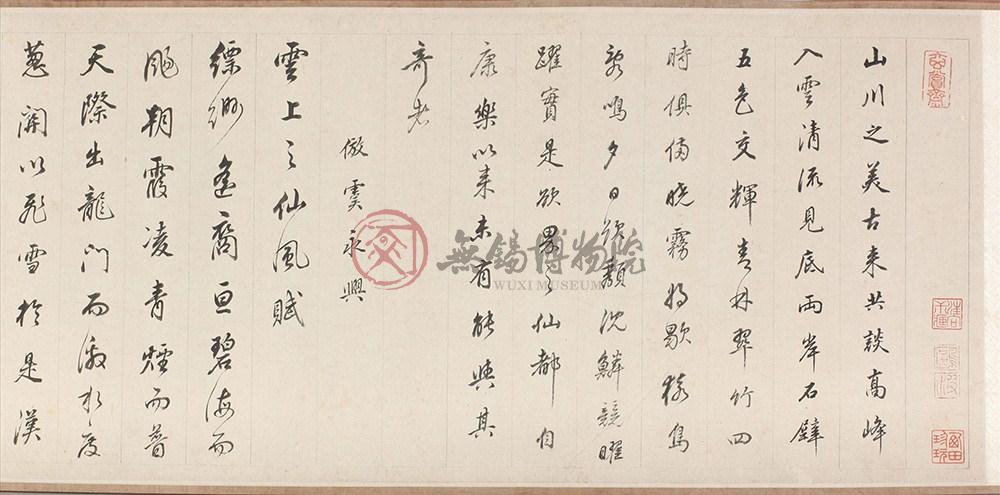 玄賞齋
山川之美古来共談高峰
入雲清流見底兩岸石壁
五色交輝青林翠竹四
時俱備曉霧將歇猿鳥
亂鳴夕日欲頹沈鱗競曜
躍實是欲界之仙都自
康樂以来未有能與其
奇者
倣虞永興
雲上之仙風賦
縹緲遙裔亘碧海而
颺朝霞凌青煙而普
天際出龍門而激水度
蔥關以飛雪於是漢
無錫博物院
WUXI MUSEUM